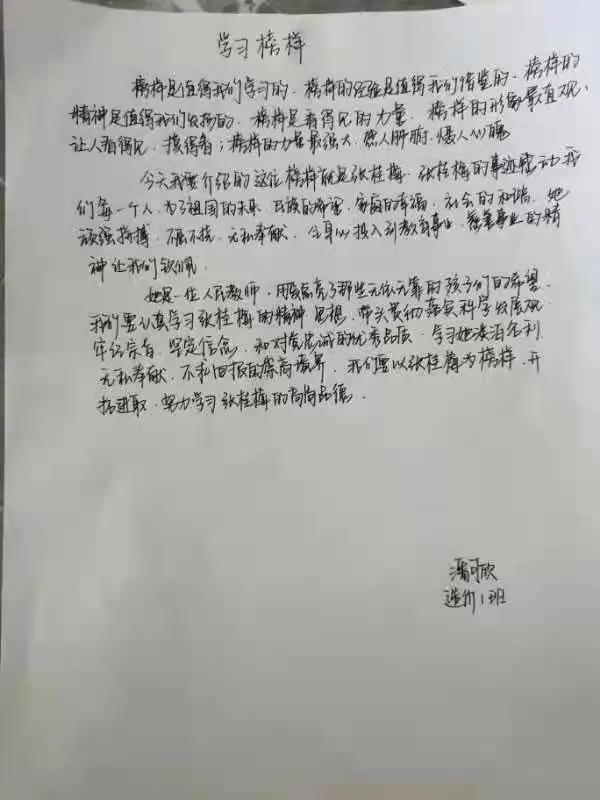 学习榜样
榜样是值得我们学习的、榜样的经验是值得我们借鉴的、榜样的
精神是值得我们发扬的、榜样是看得见的力量、榜样的形象最直观、
让人看得见、摸得着；榜样的力量最强大、感人肺腑、撼人心魄
今天我要介绍的这位榜样就是张桂梅、张桂梅的事迹感动我
们每一个人、为了祖国的未来、民族的希望、家庭的幸福、社会的和谐、她
顽强拼搏、不屈不挠、无私奉献、全身心投入到教育事业、慈善事业的精
神让我们钦佩
她是一位人民教师、用点亮了那些无依无靠的孩子们的希望、
我们要认真学习张桂梅的精神思想、带头贯彻落实科学发展观、
牢记宗旨、坚定信念、和对党忠诚的优秀品质、学习她淡泊名利、
无私奉献、不求回报的崇高境界、我们要以张桂梅为榜样、开
拓进取、努力学习张桂梅的高尚品德、
潘可欣
造价1班